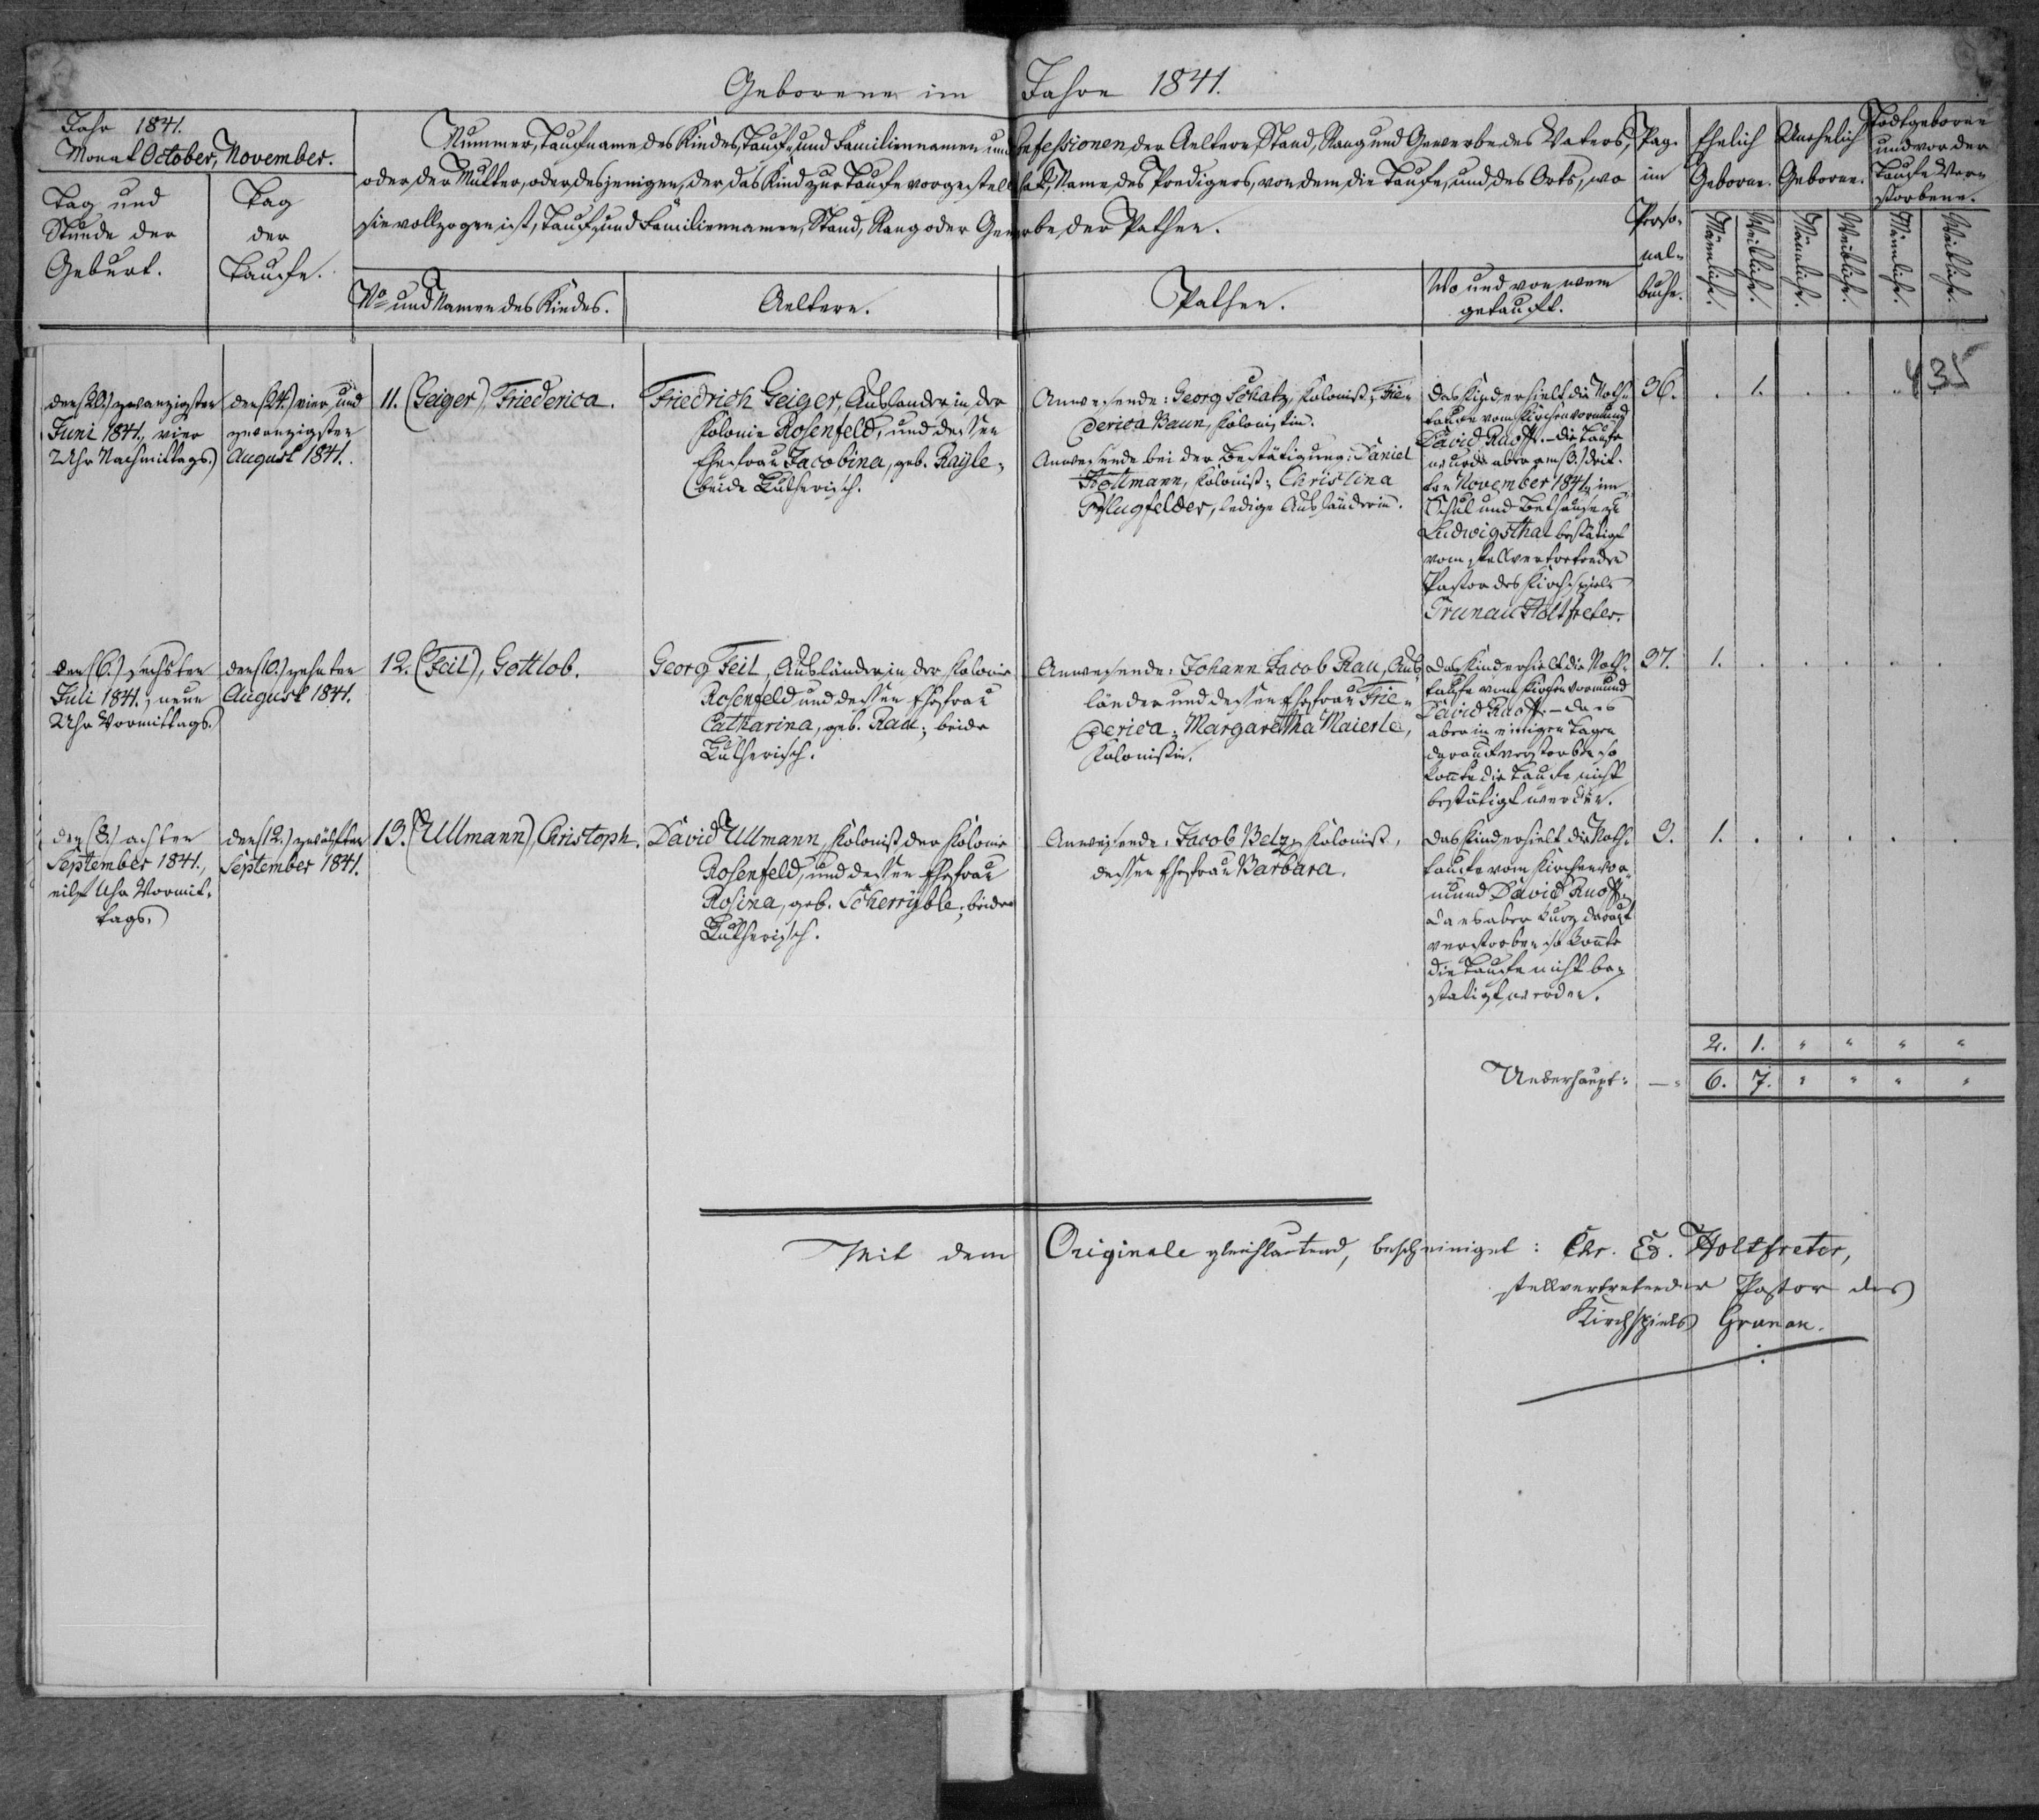 Geborene im Jahre 1841.
Jahr 1841.
Monat October, November.
Tag und
Stunde der
Geburt.
Tag
der
Taufe.
Nummer, Taufname des Kindes, Tauf- und Familiennamen und Confessionen der Aeltern, Stand, Rang und Gewerbe des Vaters,
oder der Mutter, oder desjenigen, der das Kind zur Taufe vorgestellt hat, Name des Predigers, von dem die Taufe, und des Orts, wo
sie vollzogen ist, Tauf- und Familiennamen, Stand, Rang oder Gewerbe der Pathen.
No und Namen des Kindes.
Aeltern.
Pathen.
Wo und von wem
getauft.
Pag.
im
Perso-
nal-
buche.
Ehelich
Geborne.
Unehelich
Geborne.
Todtgeborne
und vor der
Taufe Ver-
storbene.
Männliche.
Weibliche.
Männliche.
Weibliche.
Männliche.
Weibliche.
435
den (20.) zwanzigsten
Juni 1841., vier
Uhr Nachmittags.
den (24.) vier und
zwanzigsten
August 1841.
11. (Geiger), Friederica.
Friedrich Geiger, Ausländer in der
Kolonie Rosenfeld, und dessen
Ehefrau Jacobina, geb. Rayle;
beide Lutherisch.
Anwesende: Georg Schatz, Kolonist; Frie-
derica Baun, Kolonistin.
Anwesende bei der Bestätigung: Daniel
Hottmann, Kolonist; Christina
Pflugfelder, ledige Ausländerin.
Das Kind erhielt die Noth-
taufe vom Kirchenvormund
David Ruoff. – die Taufe
wurde aber am (3.) drit-
ten November 1841, im
Schul und Bethause zu
Ludwigsthal bestätigt
vom stellvertretenden
Pastor des Kirchspiels
Grunau Holtfreter.
36. . 1. . . . .
den (6.) sechsten
Juli 1841., neun
Uhr Vormittags.
den (10.) zehnten
August 1841.
12. (Feil), Gottlob.
Georg Feil, Ausländer in der Kolonie
Rosenfeld und dessen Ehefrau
Catharina, geb. Rau; beide
Lutherisch.
Anwesende: Johann Jacob Rau, Aus-
länder und dessen Ehefrau Frie-
derica; Margaretha Maierle,
Kolonistin.
Das Kind erhielt die Noth-
taufe vom Kirchenvormund
David Ruoff. – da es
aber in einigen Tagen
darauf verstorben so
konnte die Taufe nicht
bestätigt werden.
37. 1. . . . . .
den (8.) achten
September 1841.,
eilf Uhr Vormit-
tags.
den (12.) zwölften
September 1841.
13. (Ullmann) Christoph.
David Ullmann, Kolonist der Kolonie
Rosenfeld, und dessen Ehefrau
Rosina, geb. Scherryble; beide
Lutherisch.
Anwesende: Jacob Betz, Kolonist,
dessen Ehefrau Barbara.
Das Kind erhielt die Noth-
taufe vom Kirchenvor-
mund David Ruoff,
da es aber kurz darauf
verstorben so konnte
die Taufe nicht be-
stätigt werden.
9. 1. . . . . .
2. 1. " " " "
Ueberhaupt: — 6. 7. " " " "
Mit dem Originale gleichlautend, bescheiniget: Chr. Ed. Holtfreter,
stellvertretender Pastor des
Kirchspiels Grunau.